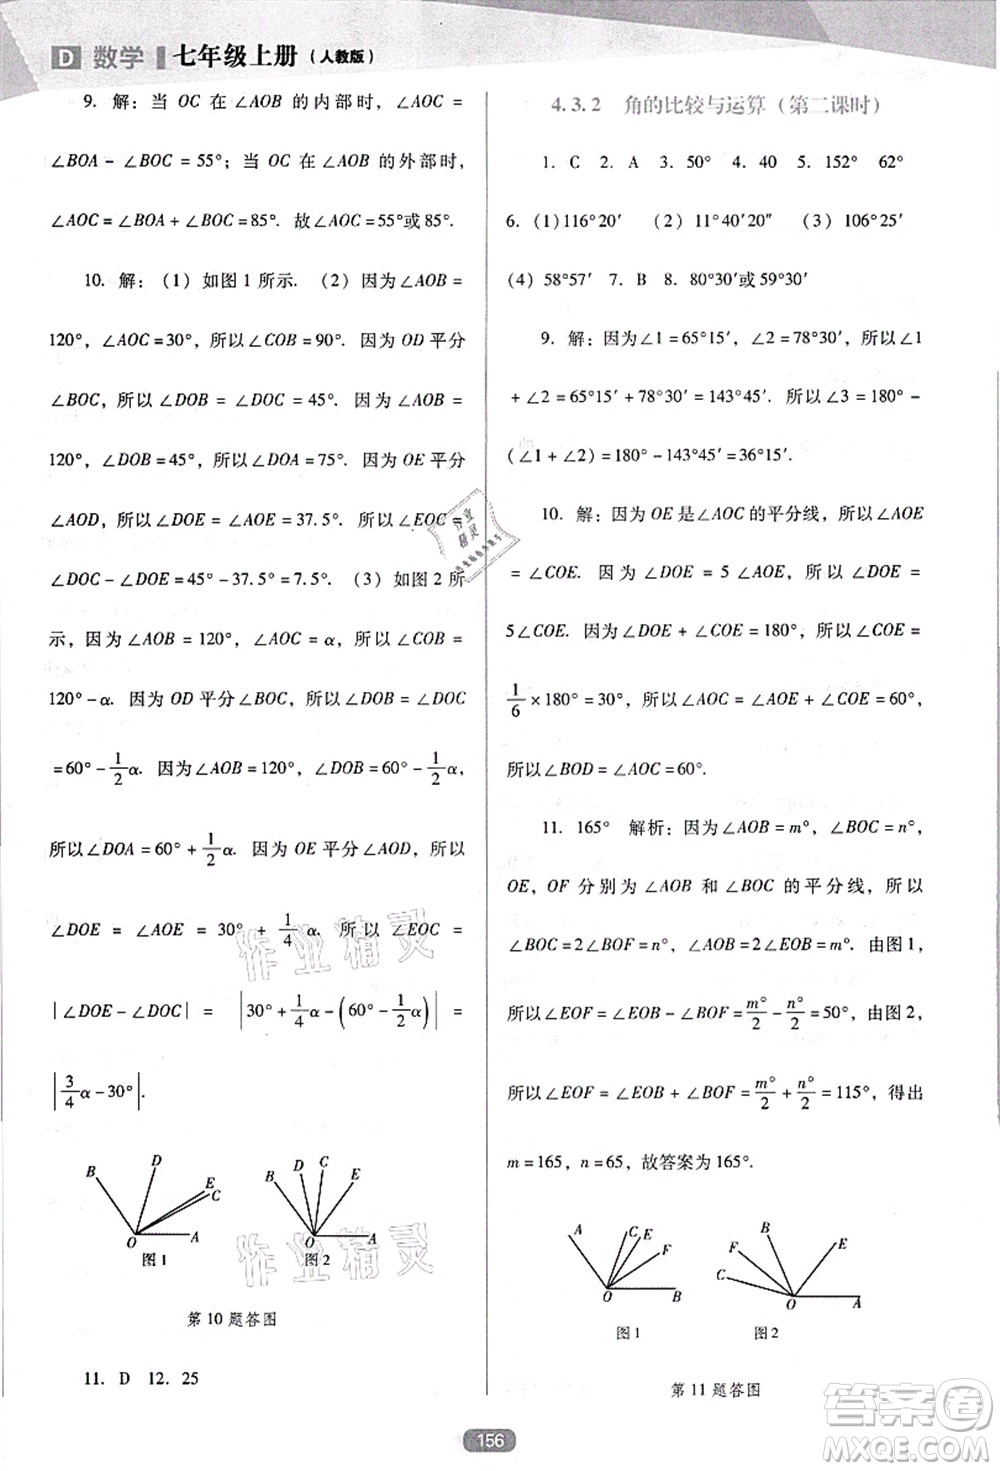 D 数学 七年级上册（人教版）
9. 解：当 OC 在∠AOB 的内部时，∠AOC =
∠BOA - ∠BOC = 55°；当 OC 在∠AOB 的外部时，
∠AOC = ∠BOA + ∠BOC = 85°. 故∠AOC = 55°或 85°.
10. 解：（1）如图 1 所示. （2）因为∠AOB =
120°，∠AOC = 30°，所以∠COB = 90°. 因为 OD 平分
∠BOC，所以∠DOB = ∠DOC = 45°. 因为∠AOB =
120°，∠DOB = 45°，所以∠DOA = 75°. 因为 OE 平分
∠AOD，所以∠DOE = ∠AOE = 37.5°. 所以∠EOC =
∠DOC - ∠DOE = 45° - 37.5° = 7.5°. （3）如图 2 所
示，因为∠AOB = 120°，∠AOC = α，所以∠COB =
120° - α. 因为 OD 平分∠BOC，所以∠DOB = ∠DOC
= 60° - 1/2 α. 因为∠AOB = 120°，∠DOB = 60° - 1/2 α，
所以∠DOA = 60° + 1/2 α. 因为 OE 平分∠AOD，所以
∠DOE = ∠AOE = 30° + 1/4 α. 所以∠EOC =
|∠DOE - ∠DOC| = |30° + 1/4 α - (60° - 1/2 α)| =
|3/4 α - 30°|.
B D E C O A
图 1
B D C E O A
图 2
第 10 题答图
11. D 12. 25
4.3.2 角的比较与运算（第二课时）
1. C 2. A 3. 50° 4. 40 5. 152° 62°
6. (1) 116°20′ (2) 11°40′20″ (3) 106°25′
(4) 58°57′ 7. B 8. 80°30′或 59°30′
9. 解：因为∠1 = 65°15′，∠2 = 78°30′，所以∠1
+ ∠2 = 65°15′ + 78°30′ = 143°45′. 所以∠3 = 180° -
(∠1 + ∠2) = 180° - 143°45′ = 36°15′.
10. 解：因为 OE 是∠AOC 的平分线，所以∠AOE
= ∠COE. 因为∠DOE = 5∠AOE，所以∠DOE =
5∠COE. 因为∠DOE + ∠COE = 180°，所以∠COE =
1/6 × 180° = 30°，所以∠AOC = ∠AOE + ∠COE = 60°，
所以∠BOD = ∠AOC = 60°.
11. 165° 解析：因为∠AOB = m°，∠BOC = n°，
OE，OF 分别为∠AOB 和∠BOC 的平分线，所以
∠BOC = 2∠BOF = n°，∠AOB = 2∠EOB = m°. 由图 1，
所以∠EOF = ∠EOB - ∠BOF = m°/2 - n°/2 = 50°，由图 2，
所以∠EOF = ∠EOB + ∠BOF = m°/2 + n°/2 = 115°，得出
m = 165，n = 65，故答案为 165°.
A C E F O B
图 1
B F E C O A
图 2
第 11 题答图
156
作业精灵
作业精灵
作业精灵
答案圈
MXQE.COM